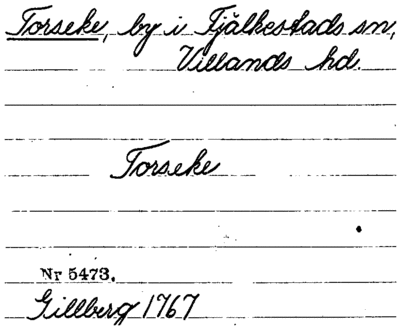 Torseke, by i Fjälkestads sn,
Villands hd.
Torseke
Nr 5473.
Gillberg 1767